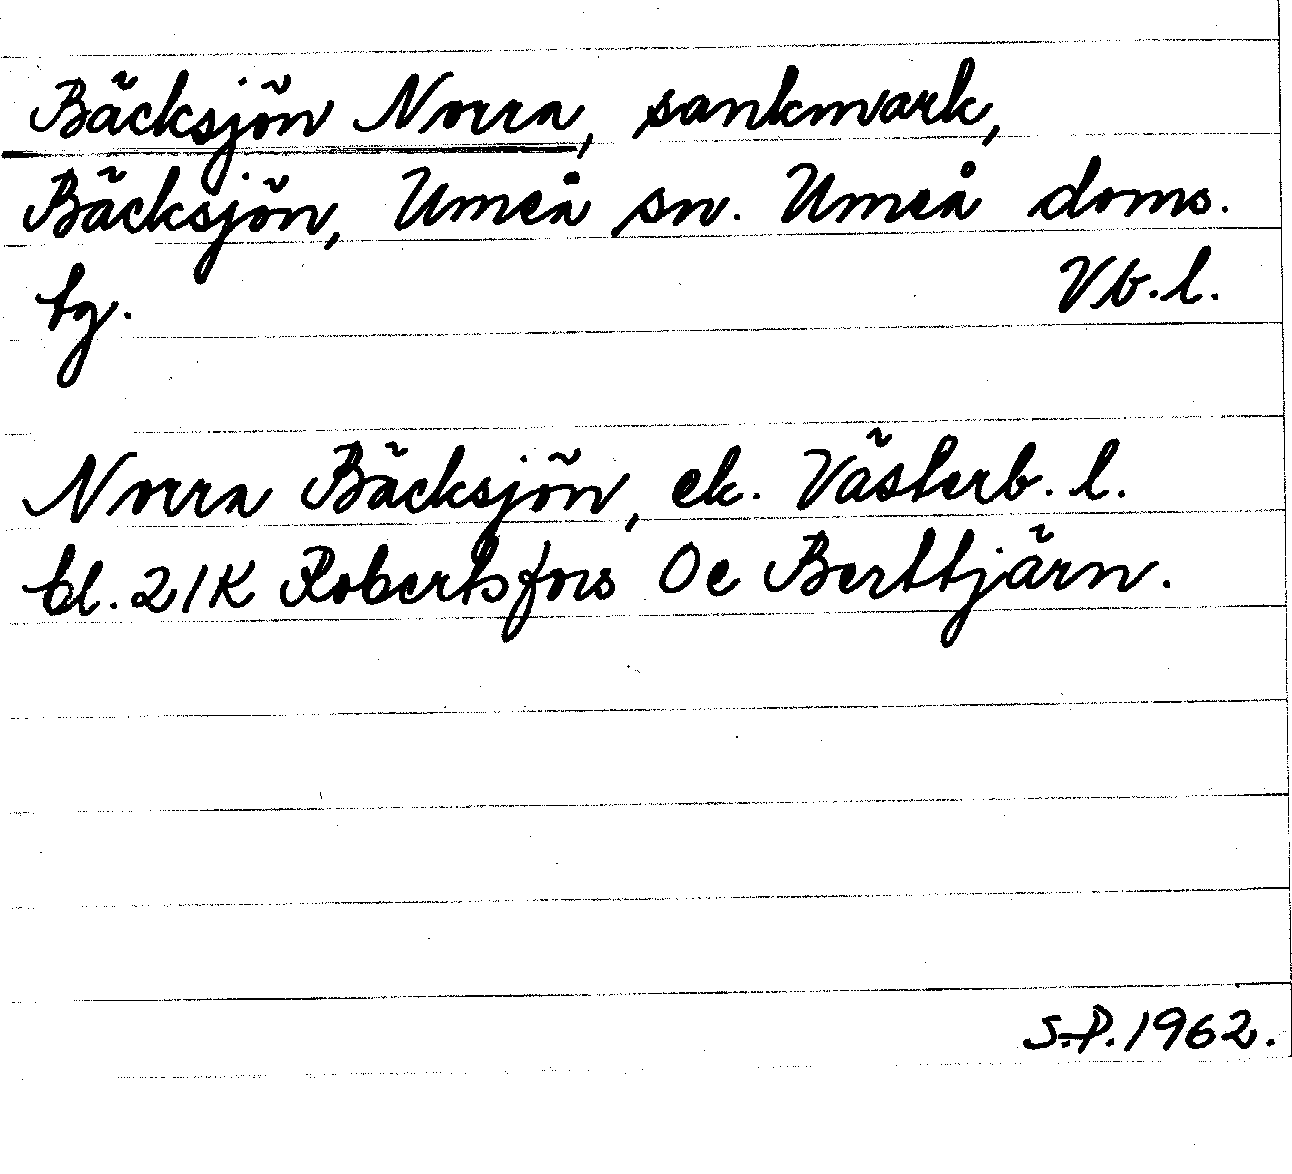 Bäcksjön Norra, sankmark,
Bäcksjön, Umeå sn. Umeå doms.
tg. Vb.l.
Norra Bäcksjön, ek. Västerb. l.
bl. 21K Robertsfors Oe Berttjärn.
S.P. 1962.